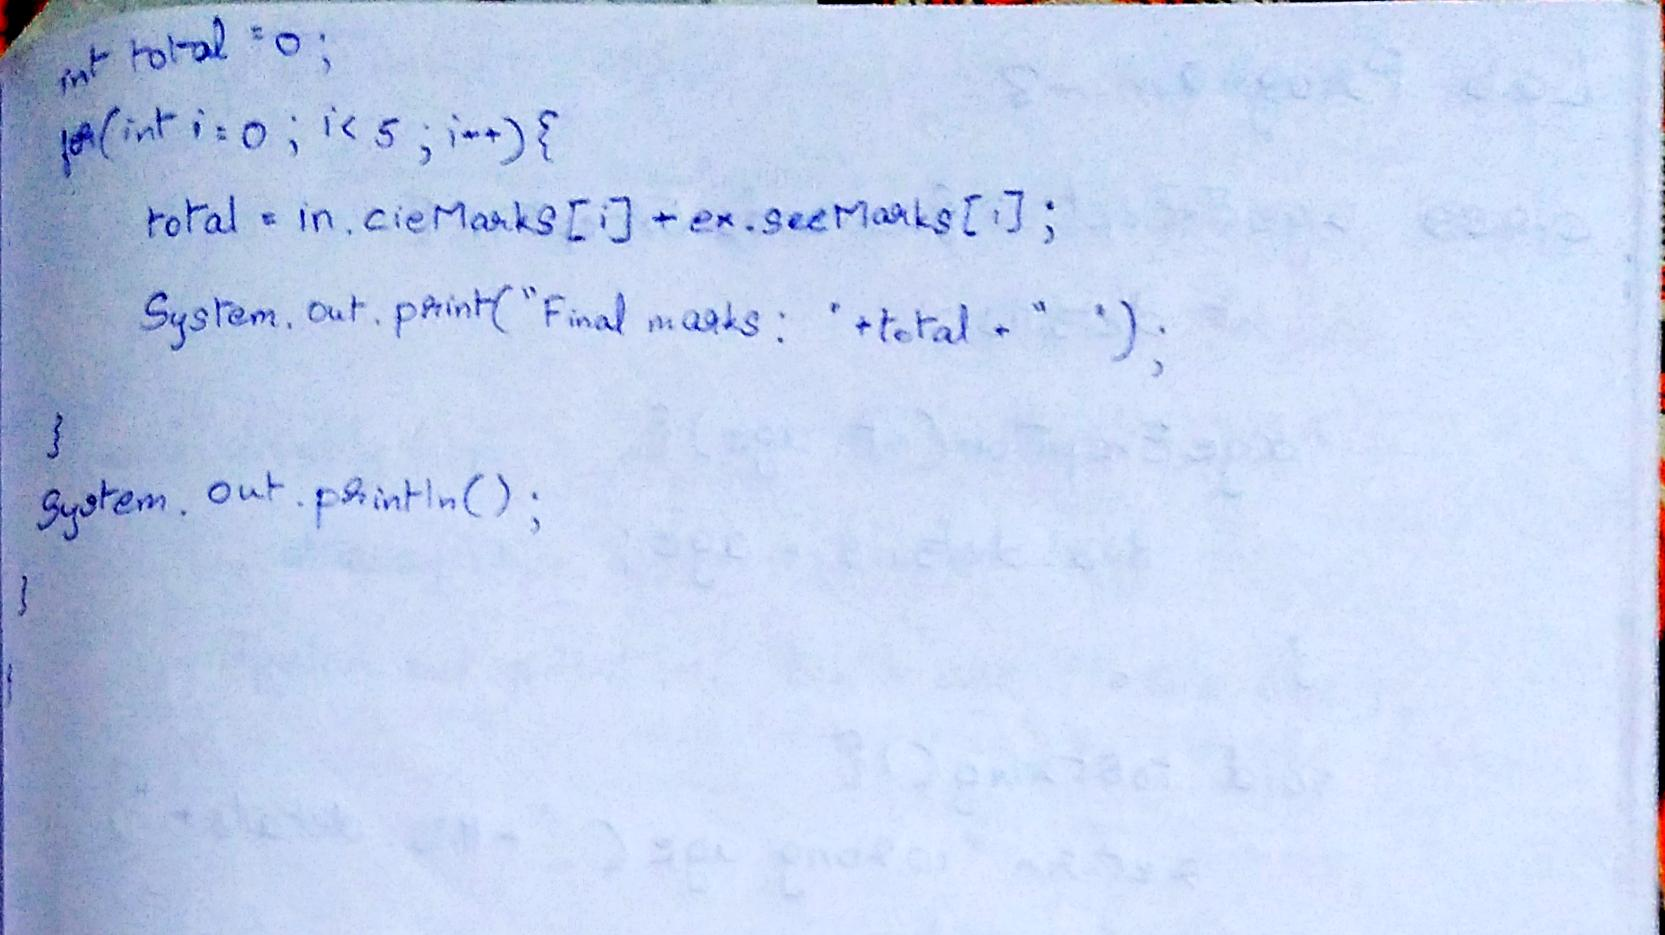 int total = 0;
for(int i = 0; i < 5; i++){
total = in.cieMarks[i] + ex.seeMarks[i];
System.out.print("Final marks: " + total + " ");
}
System.out.println();
}
}